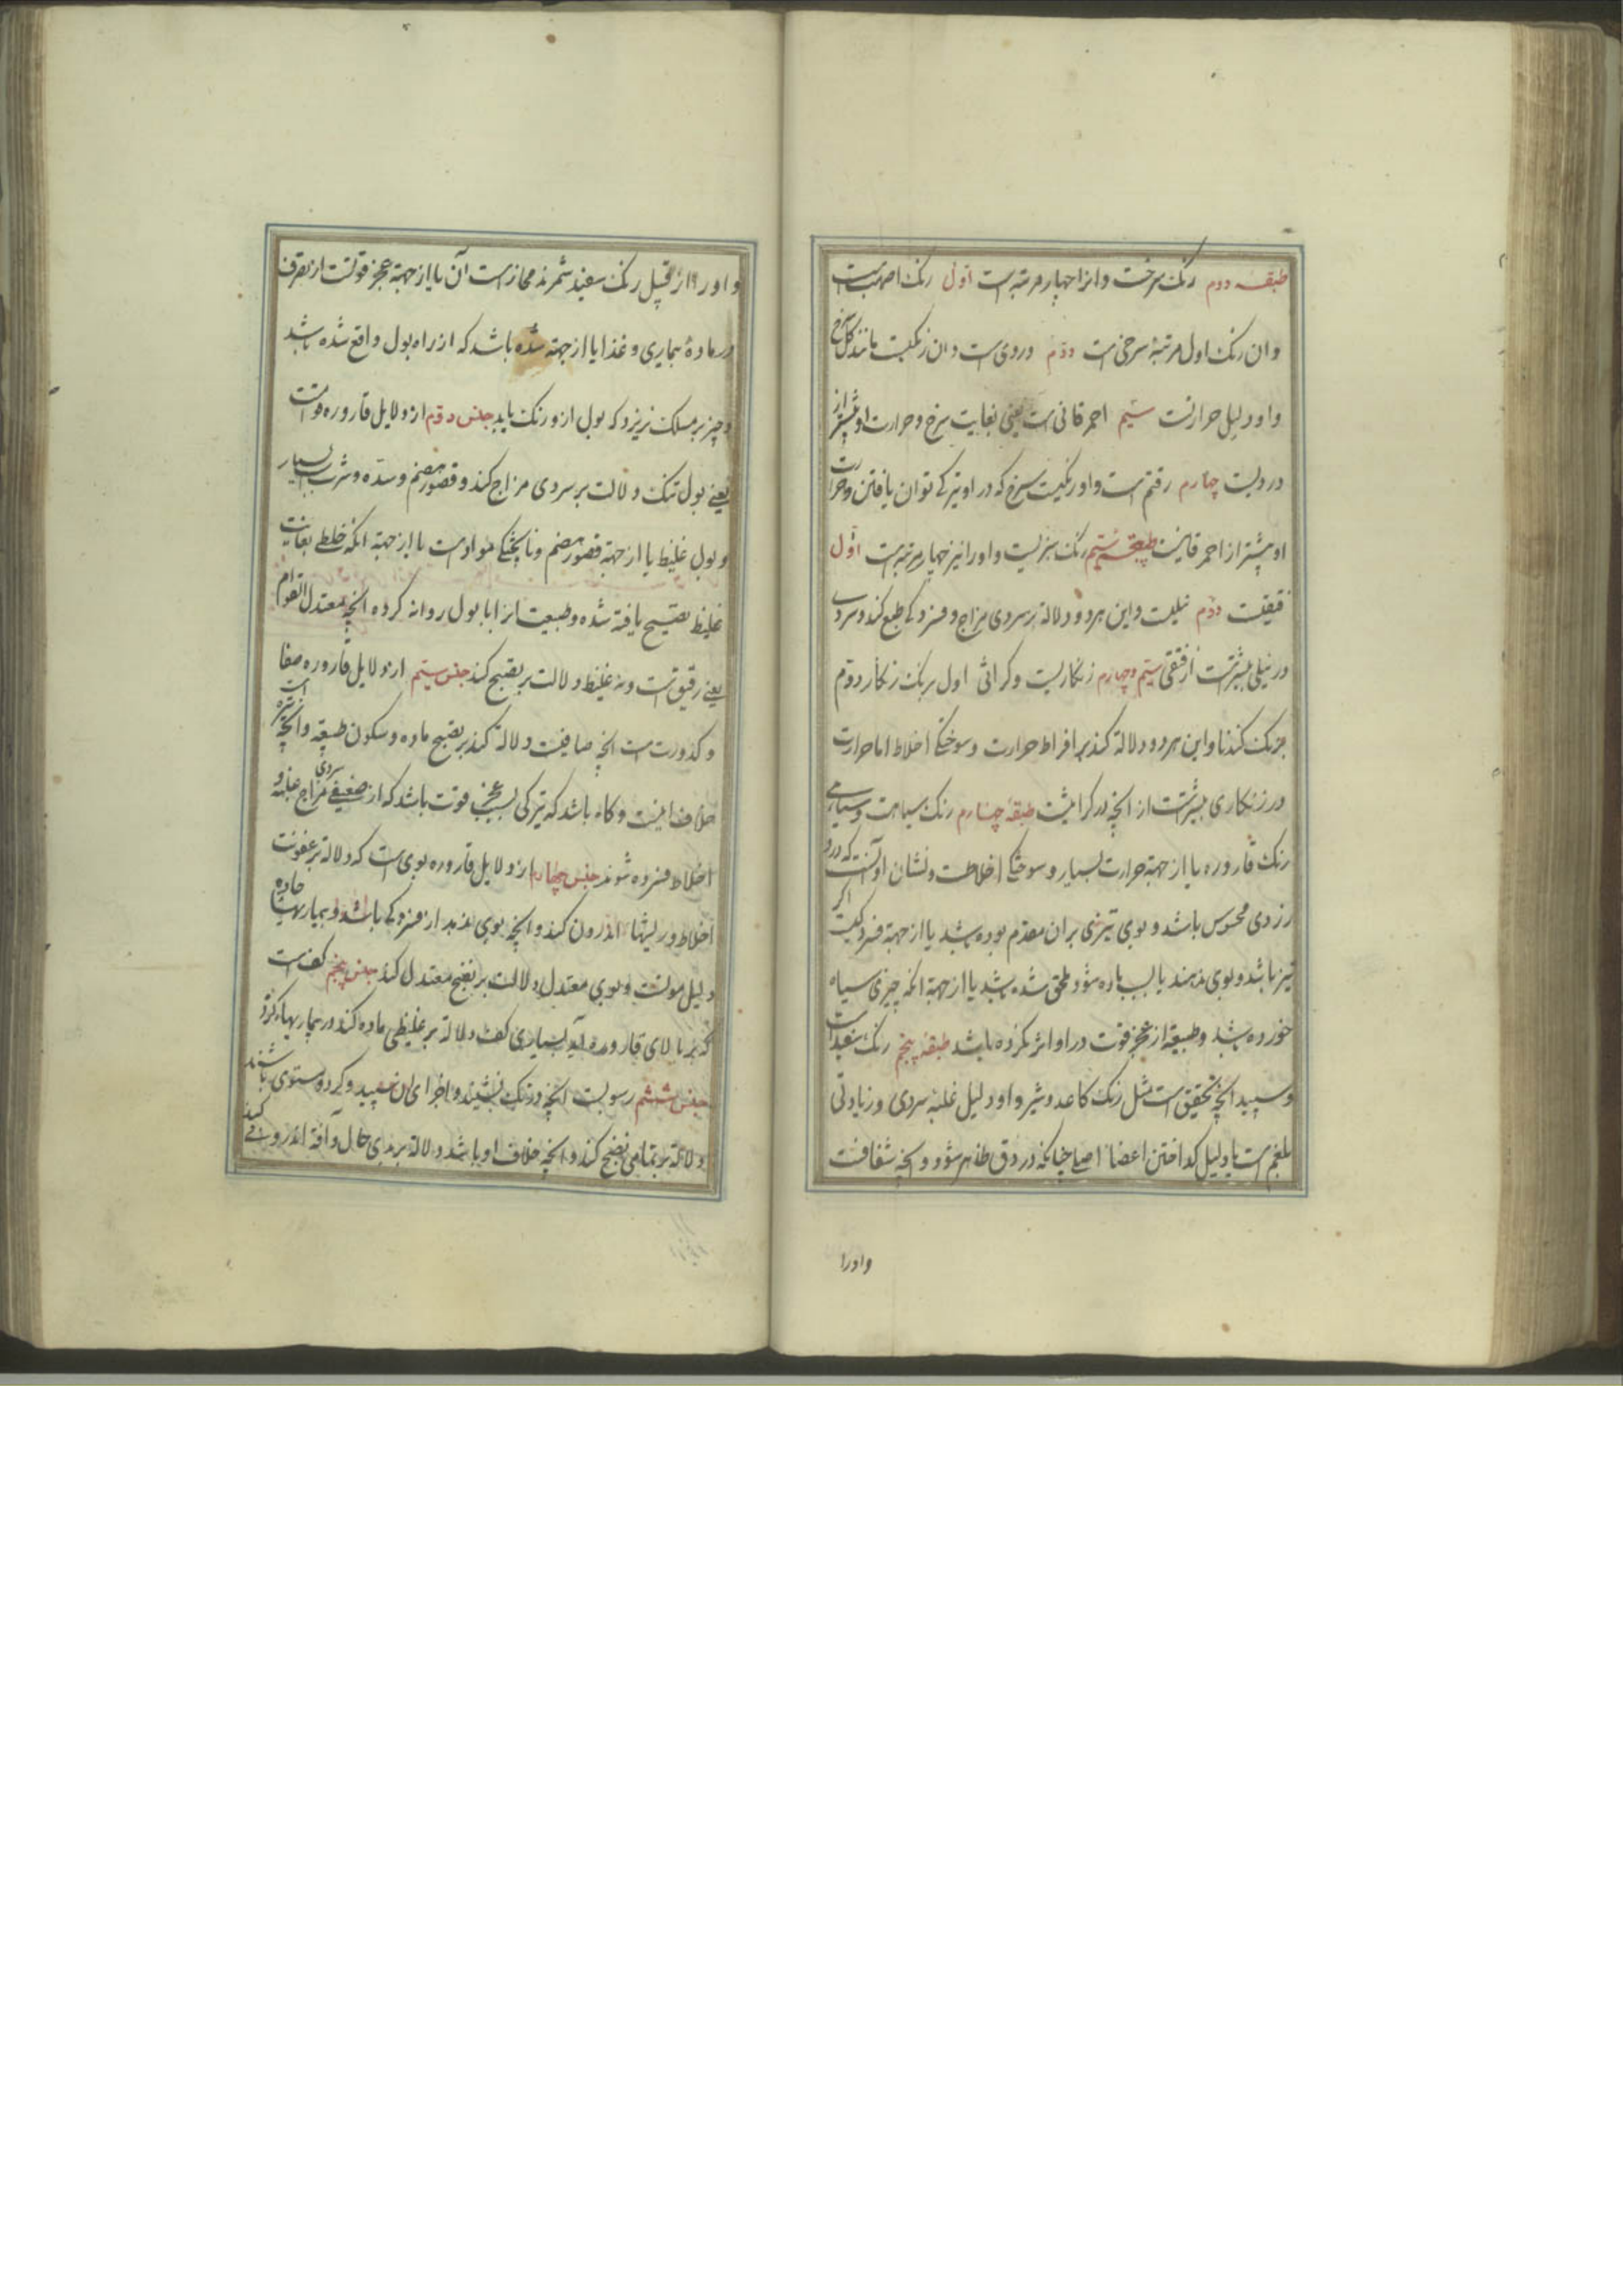 طبقه دوم رنک سرخست و انرا چهار مرتبه است اول رنک اصهبست
و ان رنک اول مرتبهٔ سرخی است دوم وردی است و ان رنکیست مانند کل سرخ
و او دلیل حرارتست سیم احمر قانی است یعنی بغایت سرخ و حرارت او بیشتر از
وردیست چهارم رقتم است و او رنکیست سرخ که در او تیرکی توان یافتن و حرارت
او بیشتر از احمر قانیست طبقه سیم رنک سبزیست و او را نیز چهار مرتبه است اول
فستقیست دوم نیلیست و این هر دو دلالة بر سردی مزاج و فسردکی طبع کند و سردی
در نیلی بیشترست از فستقی سیم و چهارم زنکاریست و کراثی اول برنک زنکار دوم
برنک کندنا و این هر دو دلالة کند بر افراط حرارت و سوختکی اخلاط اما حرارت
در زنکاری بیشترست از انچه در کراثیست طبقهٔ چهارم رنک سیاهست و سیاهی
رنک قاروره یا از جهة حرارت بسیار و سوختکی اخلاطست و نشان او آنست که در او
زردی محسوس باشد و بوی تیزی بران مقدم بوده باشد یا از جهة فسردکیست اکر
تیز باشد و بوی ندهد یا بسبب ماده سودا ملحق شده باشد یا از جهة انکه چیزی سیاه
خورده باشد و طبیعة از عجز قوت در او اثر نکرده باشد طبقه پنجم رنک سفید است
و سپید انچه بتحقیق است مثل رنک کاغد و شیر و او دلیل غلبهٔ سردی و زیادتی
بلغم است یا دلیل کداختن اعضاء اصلی چنانکه در دق ظاهر شود و انچه شفافست
و اورا
و اورا از قبیل رنک سفید شمرند مجاز است آن یا از جهة عجز قوتست از تصرف
در مادهٔ بیماری و غذا یا از جهة سده باشد که از راه بول واقع شده باشد
و چیز بر مسلک نریزد که بول ازو رنک یابد جنس دوم از دلایل قاروره قوام است
یعنی بول تنک دلالت بر سردی مزاج کند و قصور هضم و سده و شرب آب بسیار
و بول غلیظ یا از جهة قصور هضم و ناپختکی مواد است یا از جهة انکه خلطی بغایت
غلیظ نضج یافته شده و طبیعت انرا با بول روانه کرده انچه معتدل القوام
یعنی رقیق است و نه غلیظ دلالت بر نضج کند جنس سیم از دلایل قاروره صفا
و کدورت است انچه صافیست دلالة کند بر نضج ماده و سکون طبیعة و انچه تیره است
خلاف اینست و کاه باشد که تیرکی بسبب عجز قوت باشد که از ضعیفی مزاج غلبه سردی و
اخلاط فسرده شوند جنس چهارم از دلایل قاروره بوی است که دلالة بر عفونت
اخلاط و ریشها اندرون کند و انچه بوی ندهد از فسردکی باشد و بیماریهاء حاده
دلیل موتست و بوی معتدل دلالت بر نضج معتدل کند جنس پنجم کفست
که بر بالای قاروره آید بسیاری کف دلالة بر غلیظی ماده کند در بیماریهاء کرد
جنس ششم رسوبست انچه در تک نشیند و اجزای ان سپید و کرد و مستوی باشند
دلالة بر تمامی نضج کند و انچه خلاف او باشد دلالة بر بدی حال و آفة اندرونی کند